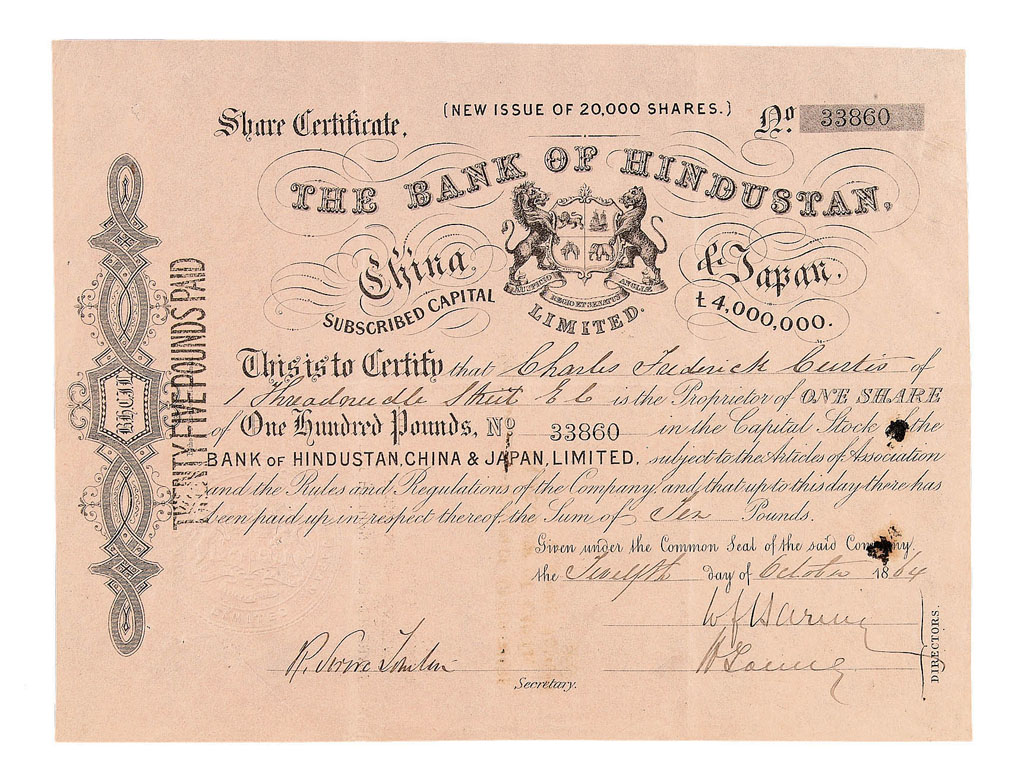 (NEW ISSUE OF 20,000 SHARES.)
Share Certificate, No. 33860
THE BANK OF HINDUSTAN,
China, & Japan,
AUSPICIO REGIO ET SENATUS ANGLIÆ
SUBSCRIBED CAPITAL £4,000,000.
LIMITED.
This is to Certify that Charles Frederick Curtis of
1 Threadneedle Street E C is the Proprietor of ONE SHARE
of One Hundred Pounds, No 33860 in the Capital Stock of the
BANK OF HINDUSTAN, CHINA & JAPAN, LIMITED, subject to the Articles of Association
and the Rules and Regulations of the Company, and that up to this day there has
been paid up in respect thereof, the Sum of Ten Pounds.
Given under the Common Seal of the said Company,
the Twelfth day of October 1864
DIRECTORS.
Secretary.
TWENTY FIVE POUNDS PAID
BHCJL